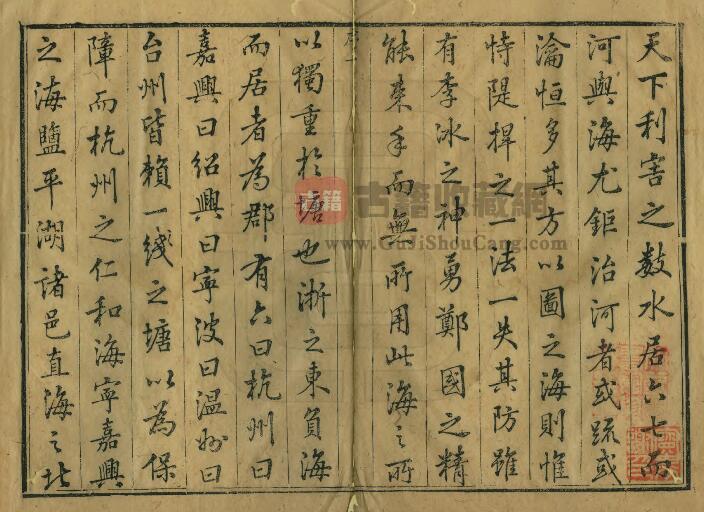 天下利害之數水居六七而
河與海尤鉅治河者或疏或
瀹恒多其方以圖之海則惟
恃隄捍之一法一失其防雖
有李冰之神勇鄭國之精
能束手而無所用此海之所
以獨重於塘也浙之東負海
而居者為郡有六曰杭州曰
嘉興曰紹興曰寧波曰温州曰
台州皆賴一綫之塘以為保
障而杭州之仁和海寧嘉興
之海鹽平湖諸邑直海之北
古籍 古籍收藏網
www.GuJiShouCang.com